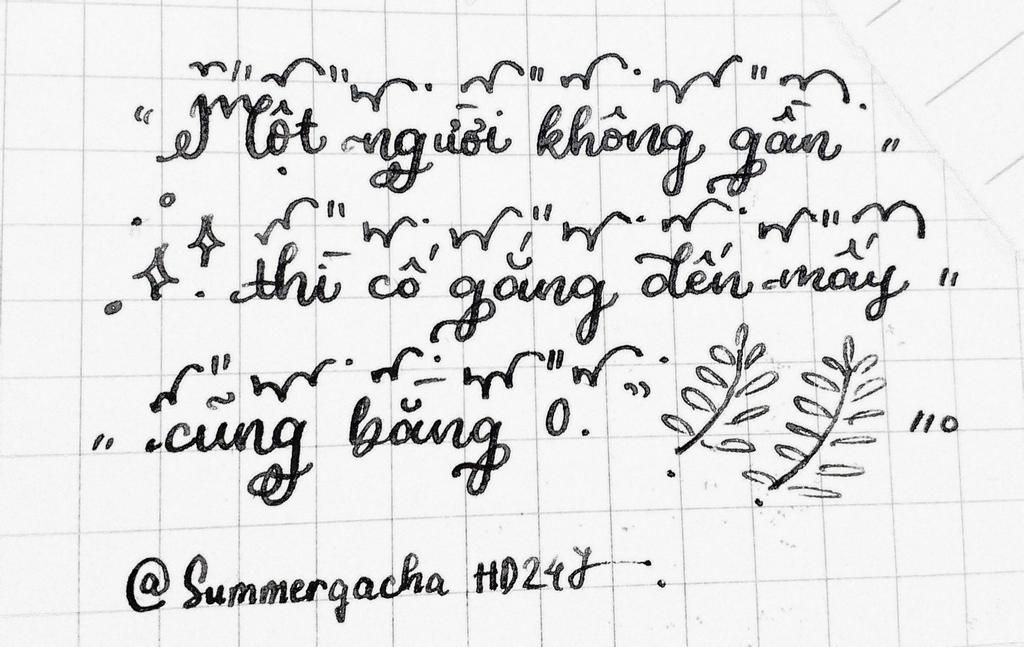 "Một người không gần"
thì cố gắng đến mấy"
"cũng bằng 0.
@Summergacha HD24y